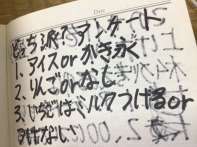 どち派?アンケート
1、アイスorかき氷
2、りんごorなし
3、いちごはミルクつけるor
つけない